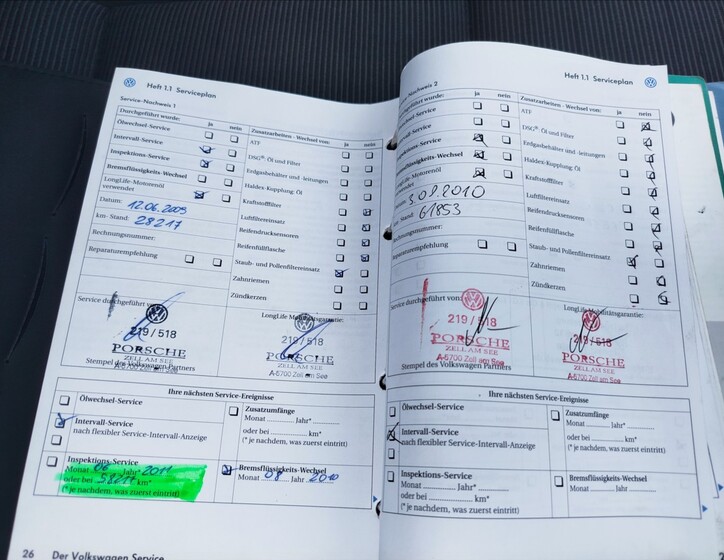 Heft 1.1 Serviceplan
Service-Nachweis 1
Durchgeführt wurde:
ja
nein
Zusatzarbeiten - Wechsel von:
ja
nein
Ölwechsel-Service
ATF
Intervall-Service
DSG®-Öl und Filter
Inspektions-Service
Erdgasbehälter und -leitungen
Bremsflüssigkeits-Wechsel
Haldex-Kupplung Öl
LongLife-Motorenöl
verwendet
Kraftstofffilter
Datum: 12.06.2009
Luftfiltereinsatz
km-Stand: 28217
Reifendrucksensoren
Rechnungsnummer:
Reifenfüllflasche
Reparaturempfehlung
Staub- und Pollenfiltereinsatz
Zahnriemen
Zündkerzen
Service durchgeführt von:
LongLife Mobilitätsgarantie:
219/518
PORSCHE
ZELL AM SEE
A-5700 Zell am See
Stempel des Volkswagen Partners
219/518
PORSCHE
ZELL AM SEE
A-5700 Zell am See
Ihre nächsten Service-Ereignisse
Ölwechsel-Service
Zusatzumfänge
Monat ........ Jahr*
Intervall-Service
nach flexibler Service-Intervall-Anzeige
oder bei ........ km*
(* je nachdem, was zuerst eintritt)
Inspektions-Service
Monat 06 Jahr* 2011
oder bei 58217 km*
(* je nachdem, was zuerst eintritt)
Bremsflüssigkeits-Wechsel
Monat 08 Jahr 2010
26 Der Volkswagen Service
Heft 1.1 Serviceplan
Nachweis 2
wurde:
ja
nein
Zusatzarbeiten - Wechsel von:
ja
nein
Service
ATF
Service
DSG®-Öl und Filter
Service
Erdgasbehälter und -leitungen
Wechsel
Haldex-Kupplung Öl
Motorenöl
Kraftstofffilter
3.08.2010
Luftfiltereinsatz
Stand: 61853
Reifendrucksensoren
Rechnungsnummer:
Reifenfüllflasche
Reparaturempfehlung
Staub- und Pollenfiltereinsatz
Zahnriemen
Zündkerzen
Service durchgeführt von:
LongLife Mobilitätsgarantie:
219/518
PORSCHE
ZELL AM SEE
A-5700 Zell am See
Stempel des Volkswagen Partners
PORSCHE
ZELL AM SEE
A-5700 Zell am See
Ihre nächsten Service-Ereignisse
Ölwechsel-Service
Zusatzumfänge
Monat ........ Jahr*
Intervall-Service
nach flexibler Service-Intervall-Anzeige
oder bei ........ km*
(* je nachdem, was zuerst eintritt)
Inspektions-Service
Monat ........ Jahr*
oder bei ........ km*
(* je nachdem, was zuerst eintritt)
Bremsflüssigkeits-Wechsel
Monat ........ Jahr